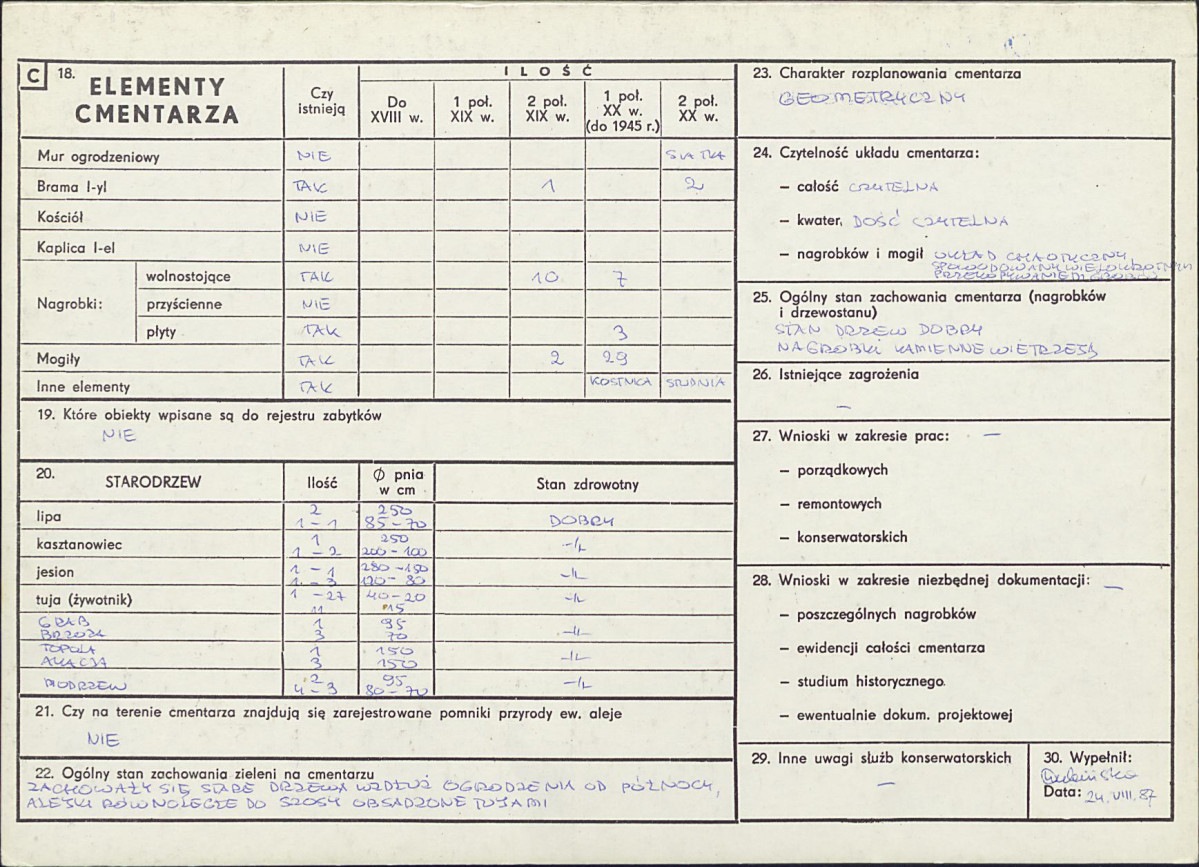 C 18. ELEMENTY CMENTARZA
Czy istnieją
ILOŚĆ
Do XVIII w.
1 poł. XIX w.
2 poł. XIX w.
1 poł. XX w. (do 1945 r.)
2 poł. XX w.
Mur ogrodzeniowy NIE SIATKA
Brama l-yl TAK 1 2
Kościół NIE
Kaplica l-el NIE
Nagrobki:
wolnostojące TAK 10 7
przyścienne NIE
płyty TAK 3
Mogiły TAK 2 29
Inne elementy TAK KOSTNICA STUDNIA
19. Które obiekty wpisane są do rejestru zabytków
NIE
20. STARODRZEW Ilość Ø pnia w cm Stan zdrowotny
lipa 2 250
1 – 1 85 – 70 DOBRY
kasztanowiec 1 250
1 – 2 200 – 100 –//–
jesion 1 – 1 280 – 150
1 – 3 120 – 80 –//–
tuja (żywotnik) 1 – 27 40 – 20 –//–
11 15
GRAB 1 95
BRZOZA 3 70 –//–
TOPOLA 1 150
AKACJA 3 150 –//–
MODRZEW 2 95
4 – 3 80 – 70 –//–
21. Czy na terenie cmentarza znajdują się zarejestrowane pomniki przyrody ew. aleje
NIE
22. Ogólny stan zachowania zieleni na cmentarzu
ZACHOWAŁY SIĘ STARE DRZEWA WZDŁUŻ OGRODZENIA OD PÓŁNOCY,
ALEJKI RÓWNOLEGŁE DO SZOSY OBSADZONE TUJAMI
23. Charakter rozplanowania cmentarza
GEOMETRYCZNY
24. Czytelność układu cmentarza:
– całość CZYTELNA
– kwater, DOŚĆ CZYTELNA
– nagrobków i mogił UKŁAD CHAOTYCZNY,
SPOWODOWANY WIELOKROTNYM
PRZEKOPYWANIEM GROBÓW
25. Ogólny stan zachowania cmentarza (nagrobków
i drzewostanu)
STAN DRZEW DOBRY
NAGROBKI KAMIENNE WIETRZEJĄ
26. Istniejące zagrożenia
–
27. Wnioski w zakresie prac: –
– porządkowych
– remontowych
– konserwatorskich
28. Wnioski w zakresie niezbędnej dokumentacji: –
– poszczególnych nagrobków
– ewidencji całości cmentarza
– studium historycznego.
– ewentualnie dokum. projektowej
29. Inne uwagi służb konserwatorskich
–
30. Wypełnił:
Data: 24. VIII. 87